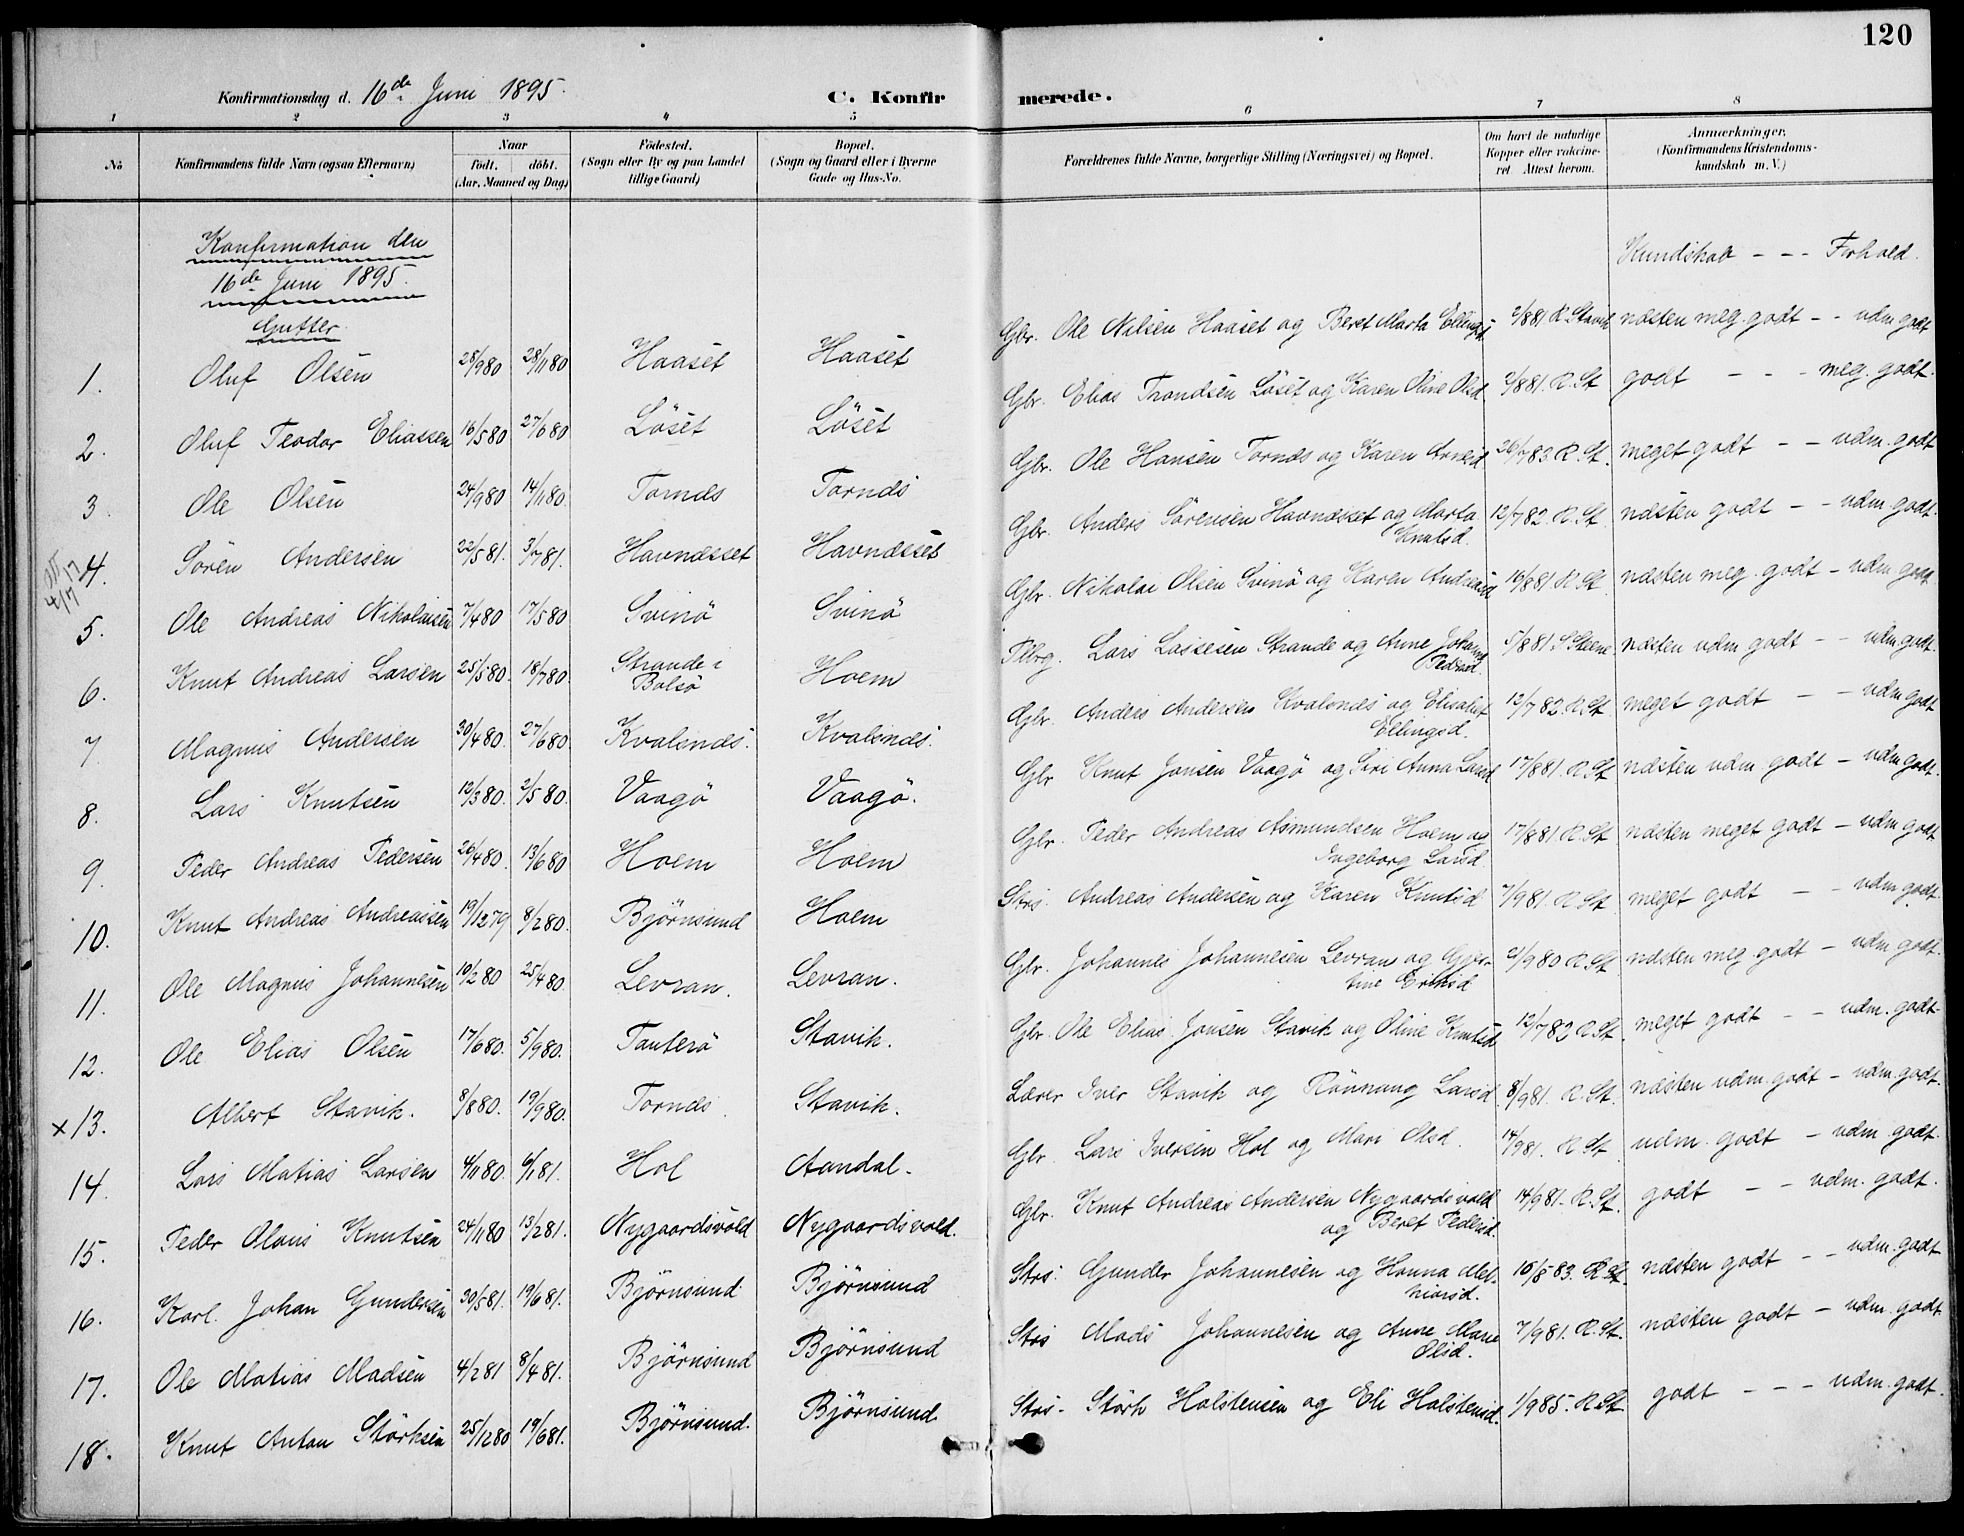 120
Konfirmationsdag d. 16de Juni 1895.
C. Konfirmerede.
1 2 3 4 5 6 7 8
No
Konfirmandens fulde Navn (ogsaa Efternavn)
Naar
født. døbt.
(Aar, Maaned og Dag)
Fødested.
(Sogn eller By og paa Landet
tillige Gaard)
Bopæl.
(Sogn og Gaard eller i Byerne
Gade og Hus-No.
Forældrenes fulde Navne, borgerlige Stilling (Næringsvei) og Bopæl.
Om havt de naturlige
Kopper eller vakcine-
ret. Attest herom.
Anmærkninger,
(Konfirmandens Kristendoms-
kundskab m. V.)
Konfirmation den
16de Juni 1895.
Gutter
Kundskab - - - Forhold.
1. Oluf Olsen 28/9 80 28/11 80 Haaset Haaset Gbr. Ole Nilsen Haaset og Beret Marta Ellingsd 2/8 81 R. Stavik næsten meg. godt - - udm godt
2. Oluf Teodor Eliassen 16/5 80 27/6 80 Løset Løset Gbr. Elias Trondsen Løset og Karen Oline Olsd 2/8 81. R. St godt - - - meg. godt.
3. Ole Olsen 24/9 80 14/11 80. Tornæs Tornæs Gbr. Ole Hansen Tornæs og Karen Arnesd 26/7 83. R. St. meget godt - - udm. godt
4. Søren Andersen 22/5 81. 3/7 81. Havnæsset Havnæsset Gbr. Anders Sørensen Havnæsset og Marta
Knutsd. 12/7 82. R. St. næsten godt - - udm. godt.
4/7 17
5. Ole Andreas Nikolaisen 7/4 80 17/5 80 Svinø Svinø Gbr. Nikolai Olsen Svinø og Karen Andreasd 16/8 81 R. St. næsten meg. godt - udm godt
6. Knut Andreas Larsen 25/5 80. 18/7 80. Strande i
Bolsø Hoem Lars Lassesen Strande og Anne Johanna
Pedersd. 5/8 81. S Steene. næsten udm godt - - udm. godt.
7. Magnus Andersen 30/4 80. 27/6 80. Kvalsnæs. Kvalsnæs. Gbr. Anders Andersen Kvalsnæs og Elisabet
Ellingsd. 12/7 82. R. St. meget godt - - udm godt
8. Lars Knutsen 12/3 80. 2/5 80. Vaagø Vaagø. Gbr Knut Jonsen Vaagø og Siri Anna Larsd 17/8 81. R. St næsten udm godt - udm godt.
9. Peder Andreas Pedersen 26/4 80. 13/6 80 Hoem Hoem Gbr. Peder Andreas Asmundsen Hoem og
Ingeborg Larsd. 17/8 81. R. St næsten meget godt - udm godt
10. Knut Andreas Andreassen 19/12 79 8/2 80. Bjørnsund Hoem Strs. Andreas Andersen og Karen Knutsd 7/9 81. R. St. meget godt - - udm godt.
11. Ole Magnus Johannesen 10/2 80 25/4 80. Levran. Levran. Gbr. Johannes Johannesen Levran og Gjer-
tine Eriksd 2/9 80 R. St næsten meg. godt - udm. godt.
12. Ole Elias Olsen 17/6 80. 5/9 80. Tauterø Stavik. Gbr. Ole Elias Jonsen Stavik og Oline Knutsd 12/7 82 R. St. meget godt - - udm. godt.
x 13. Albert Stavik. 8/8 80. 19/9 80. Tornæs. Stavik. Lærer Iver Stavik og Rønnaug Larsd. 8/9 81. R. St. næsten udm. godt - udm. godt.
14. Lars Matias Larsen 4/11 80. 6/1 81. Hol Aandal. Gbr. Lars Iversen Hol og Mari Olsd. 14/9 81. R St. udm. godt - udm. godt.
15. Peder Olaus Knutsen 24/11 80 13/2 81. Nygaardsvold Nygaardsvold. Gbr. Knut Andreas Andersen Nygaardsvold
og Beret Pedersd. 14/9 81. R. St. godt - - udm. godt.
16. Karl Johan Gundersen 30/5 81. 19/6 81. Bjørnsund Bjørnsund Strs. Gunder Johannesen og Hanna Mel-
kiorsd. 10/8 83. R St. næsten godt - - udm. godt
17. Ole Matias Madsen 4/2 81 8/4 81. Bjørnsund Bjørnsund Strs Mads Johannesen og Anne Marie
Olsd. 7/9 81. R. St. næsten godt - udm. godt.
18. Knut Anton Størksen 25/12 80 19/6 81. Bjørnsund. Bjørnsund Strs. Størk Holstensen og Eli Holstensd. 1/9 85. R. St godt - - - udm. godt.